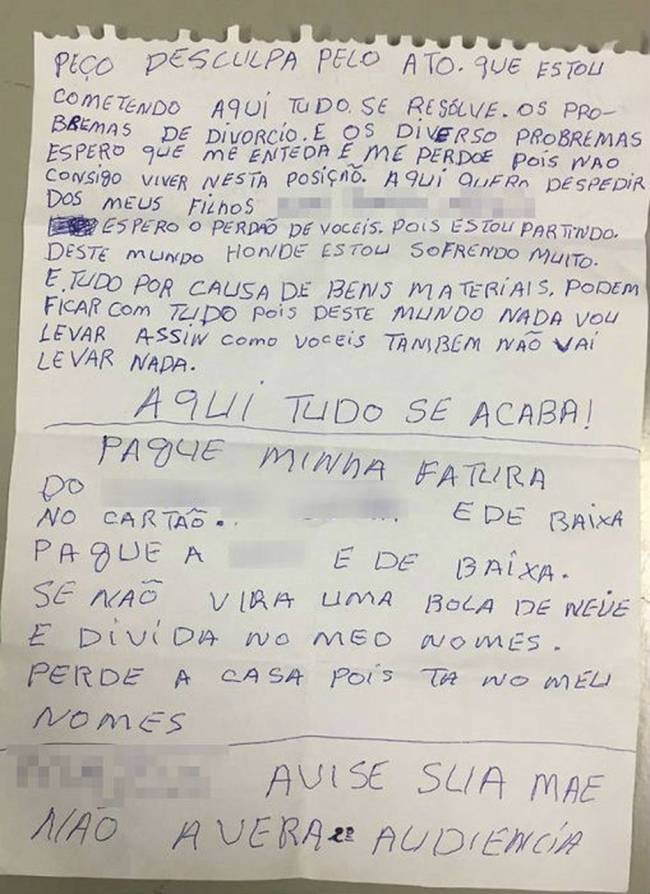 PEÇO DESCULPA PELO ATO. QUE ESTOU
COMETENDO AQUI TUDO. SE RESOLVE. OS PRO-
BREMAS DE DIVORCIO. E OS DIVERSO PROBREMAS
ESPERO QUE ME ENTEDA E ME PERDOE POIS NAO
CONSIGO VIVER NESTA POSIÇÃO. AQUI QUERO DESPEDIR
DOS MEUS FILHOS
ESPERO O PERDÃO DE VOCEIS. POIS ESTOU PARTINDO.
DESTE MUNDO HONDE ESTOU SOFRENDO MUITO.
E. TUDO POR CAUSA DE BENS MATERIAIS. PODEM
FICAR COM TUDO POIS DESTE MUNDO NADA VOU
LEVAR ASSIN COMO VOCEIS TAMBEM NÃO VAI
LEVAR NADA.
AQUI TUDO SE ACABA!
PAGUE MINHA FATURA
DO
NO CARTÃO.. E DE BAIXA
PAGUE A E DE BAIXA.
SE NAÕ VIRA UMA BOLA DE NEVE
E DIVIDA NO MEO NOMES.
PERDE A CASA POIS TA NO MEU
NOMES
AVISE SUA MAE
NÃO AVERA 2ª AUDIENCIA